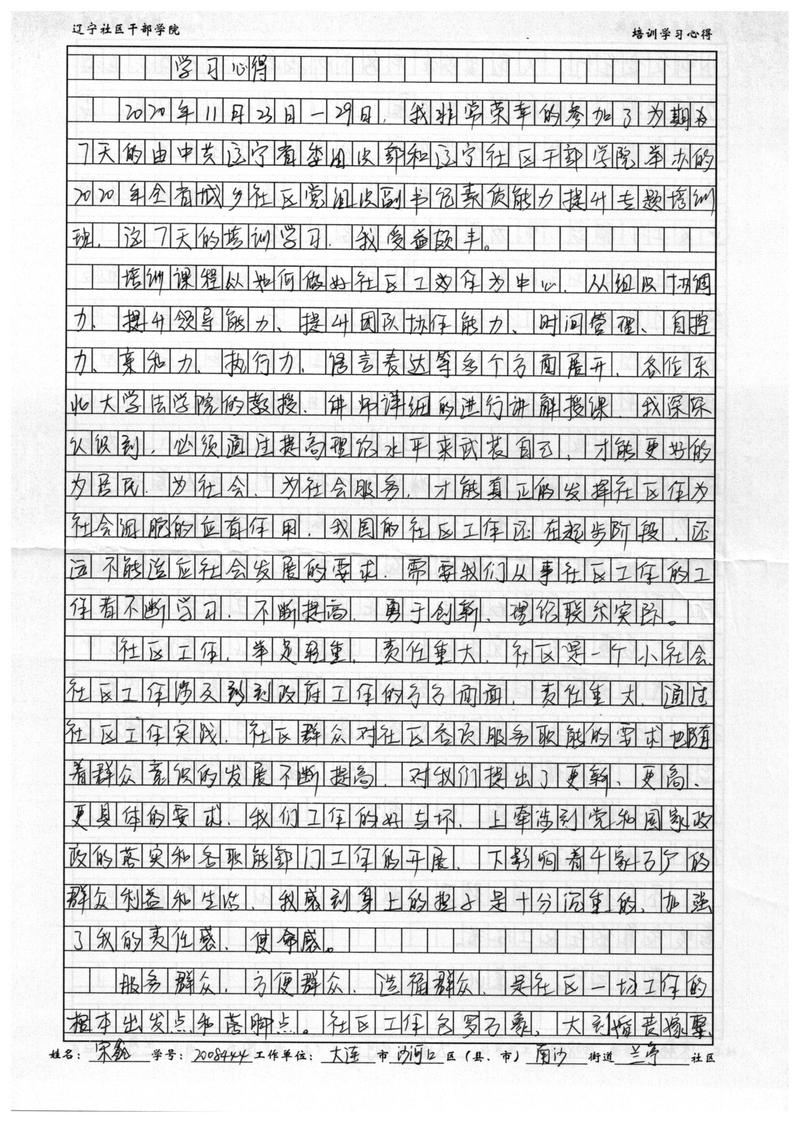 辽宁社区干部学院 培训学习心得
学习心得
2020年11月23日一29日，我非常荣幸的参加了为期为
7天的由中共辽宁省委组织部和辽宁社区干部学院举办的
2020年全省城乡社区党组织副书记素质能力提升专题培训
班，这7天的培训学习，我受益颇丰。
培训课程以如何做好社区工作为中心，从组织协调
力、提升领导能力、提升团队协作能力、时间管理、自控
力、亲和力、执行力、语言表达等多个方面展开，各位东
北大学法学院的教授、讲师详细的进行讲解授课，我深深
认识到，必须通过提高理论水平来武装自己，才能更好的
为居民、为社会、为社会服务，才能真正的发挥社区作为
社会细胞的应有作用，我国的社区工作还在起步阶段，还
远不能适应社会发展的要求，需要我们从事社区工作的工
作者不断学习，不断提高，勇于创新、理论联系实际。
社区工作，举足轻重，责任重大，社区是一个小社会
社区工作涉及到政府工作的方方面面，责任重大，通过
社区工作实践，社区群众对社区各项服务职能的要求也随
着群众意识的发展不断提高，对我们提出了更新、更高、
更具体的要求，我们工作的好与坏，上牵涉到党和国家政
政的落实和各职能部门工作的开展，下影响着千家万户的
群众利益和生活，我感到身上的担子是十分沉重的，加强
了我的责任感、使命感。
服务群众，方便群众，造福群众，是社区一切工作的
根本出发点和落脚点。社区工作包罗万象，大到婚丧嫁娶
姓名：宋 学号：2008444 工作单位：大连 市 沙河口 区（县、市）南沙 街道 兰亭 社区